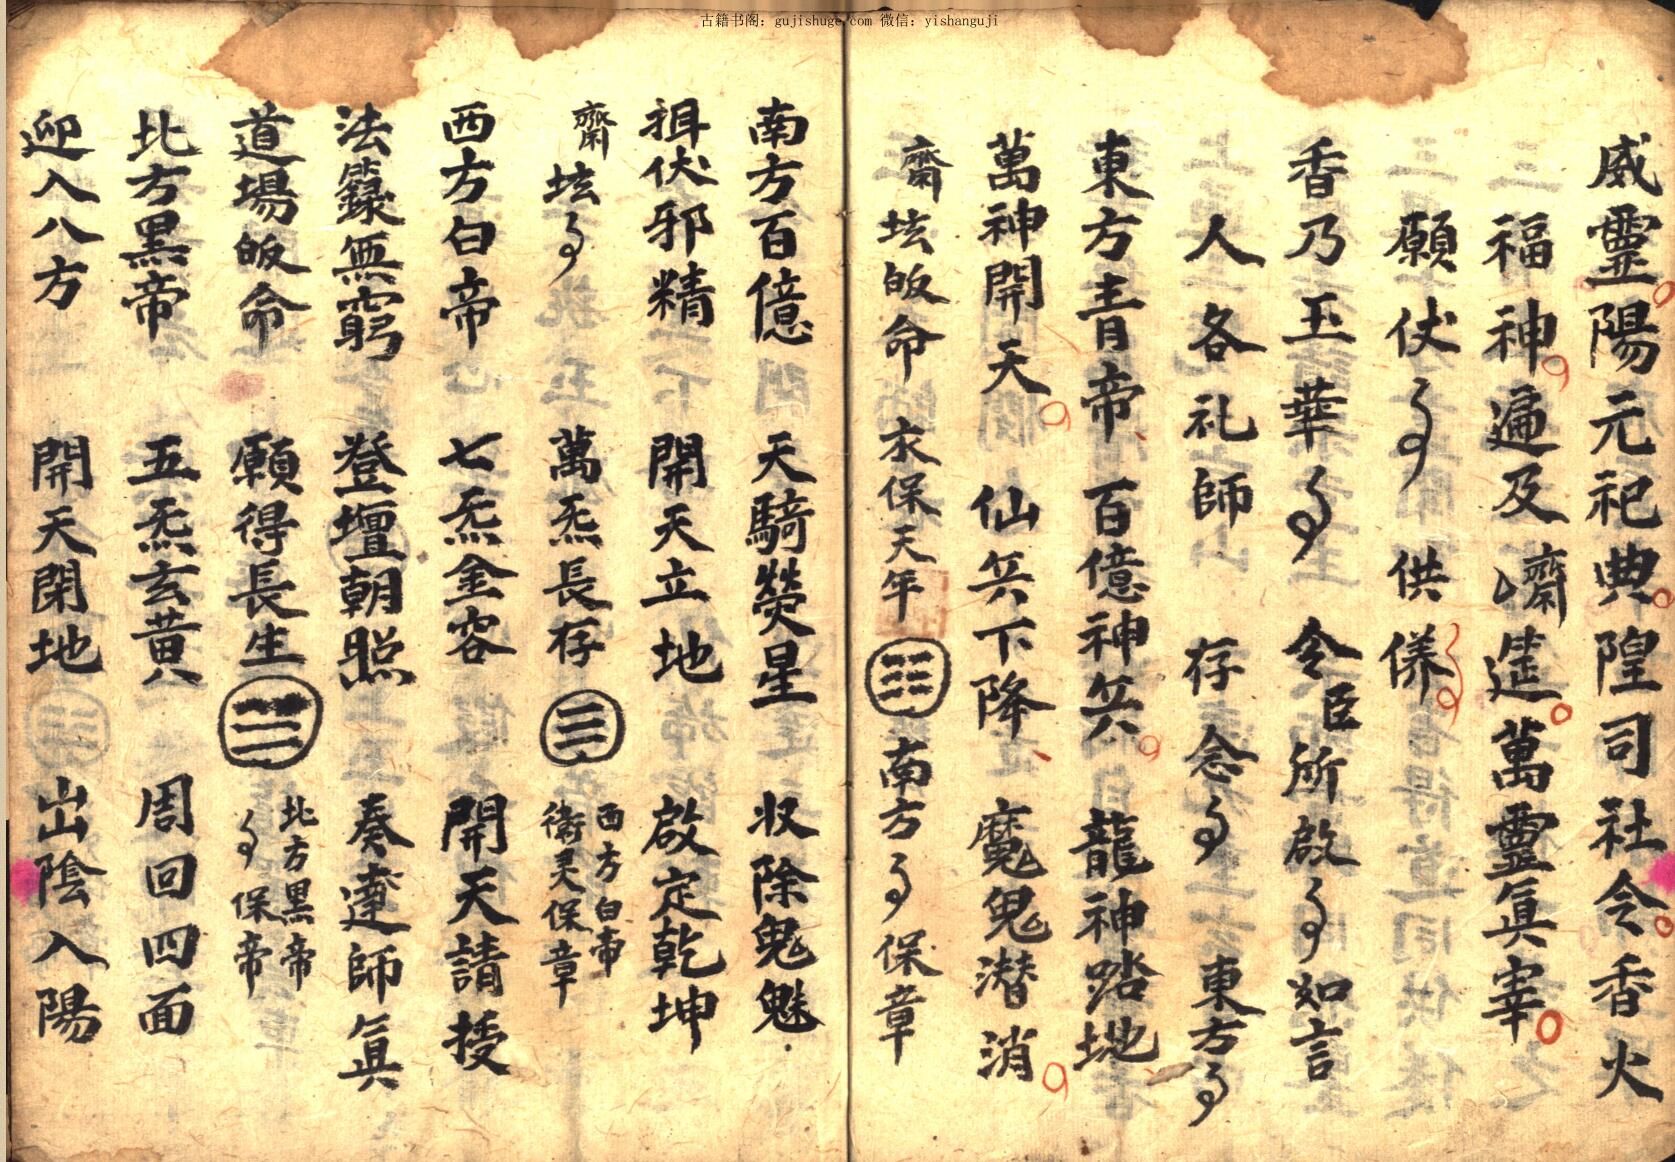 古籍书阁：gujishuge.com 微信：yishanguji
威靈陽元祀典隍司社令香火
福神遍及齋筵萬靈真宰
願伏供養
香乃玉華令臣所啟如言
人各礼師存念東方
東方青帝百億神兵龍神踏地
萬神開天仙兵下降魔鬼潜消
齋坛皈命衣保天年南方保章
南方百億天騎熒星収除鬼魅
伏邪精開天立地啟定乾坤
齋坛萬炁長存西方白帝衛灵保章
西方白帝七炁金容開天請授
法籙無窮登壇朝照奏達師真
道場皈命願得長生北方黑帝保帝
北方黑帝五炁玄黄周回四面
迎入八方開天閉地出陰入陽